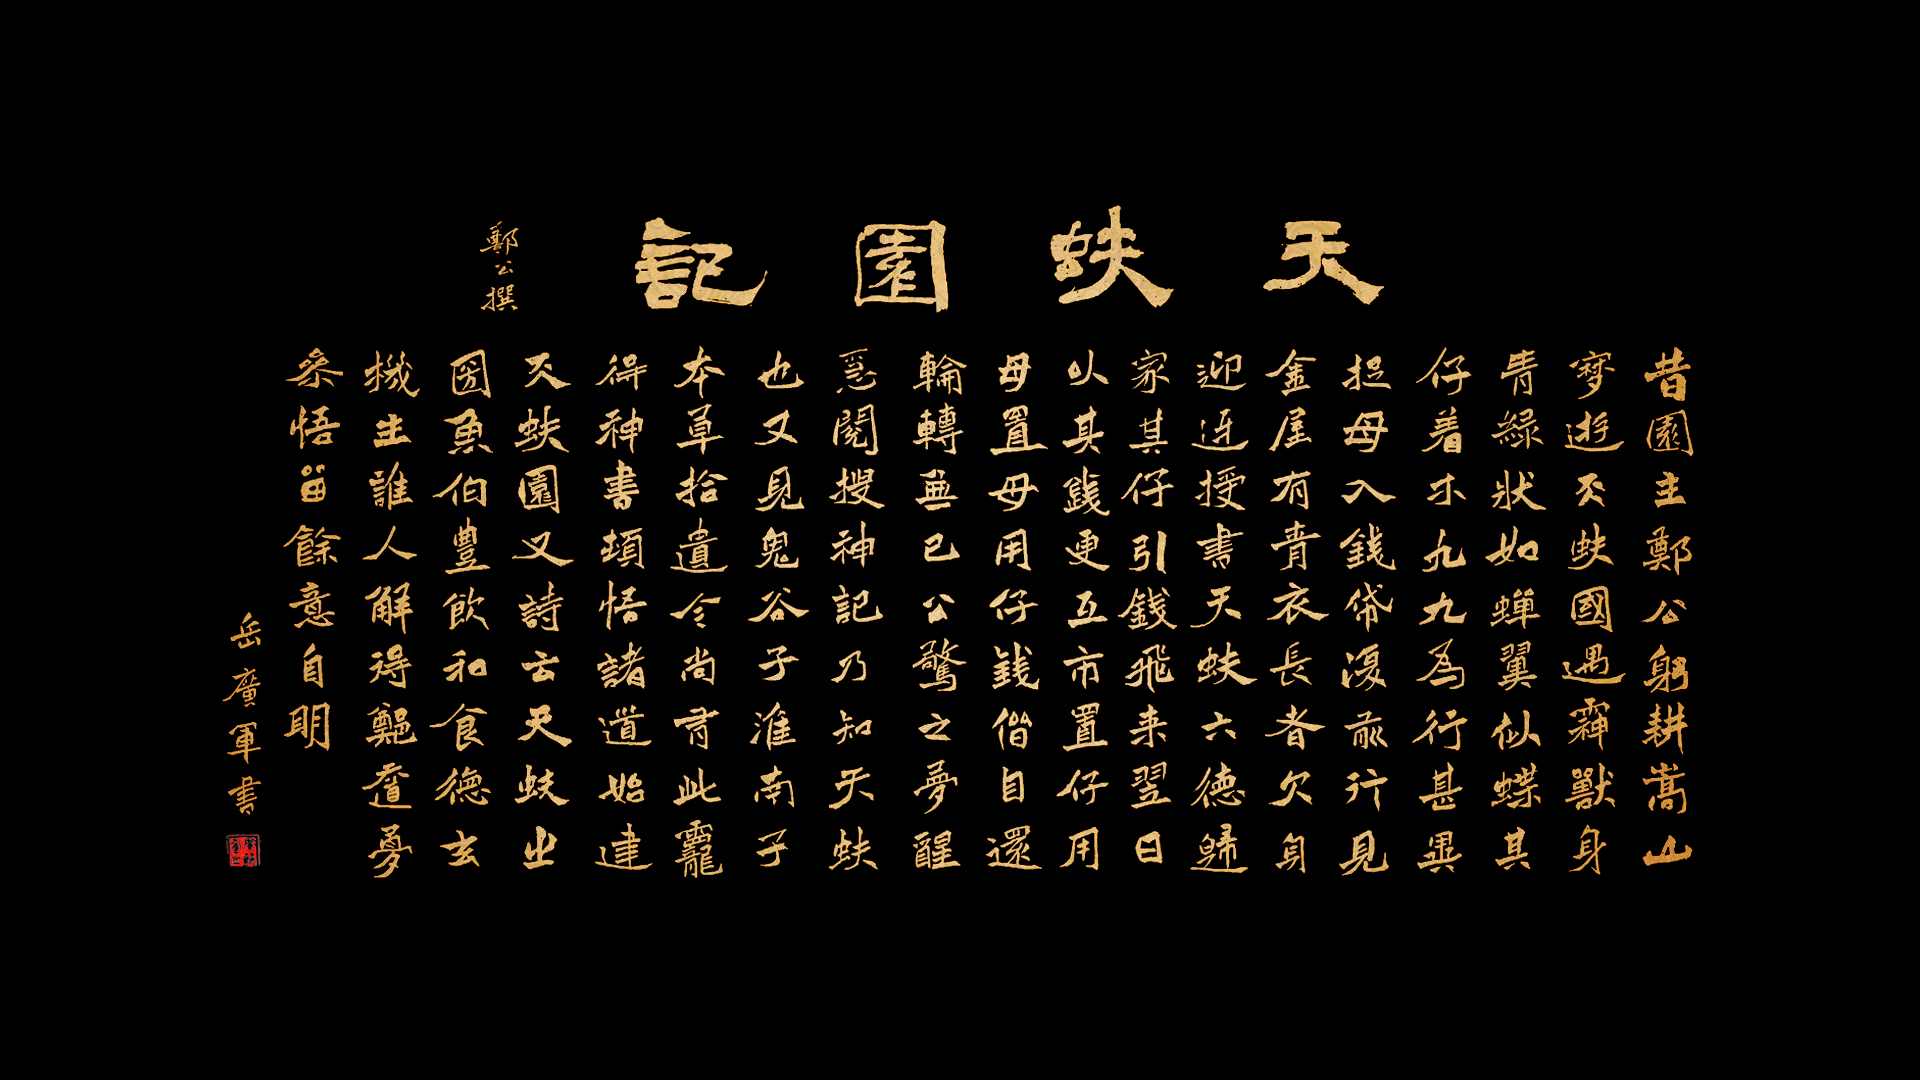 天蚨園記
鄭公撰
昔園主鄭公躬耕嵩山
夢遊天蚨國遇神獸身
青綠狀如蟬翼似蝶其
仔着木九九為行甚異
捉母入錢帒復前行見
金屋有青衣長者欠身
迎迓授書天蚨六德歸
家其仔引錢飛来翌日
以其錢更互市置仔用
母置母用仔錢偕自還
輪轉無已公驚之夢醒
急閱搜神記乃知天蚨
也又見鬼谷子淮南子
本草拾遺令尚有此靇
得神書頓悟諸道始建
天蚨園又詩云天蚨出
圀魚伯豊飲和食德玄
機主誰人解得鄭道夢
参悟留餘意自明
岳廣軍書